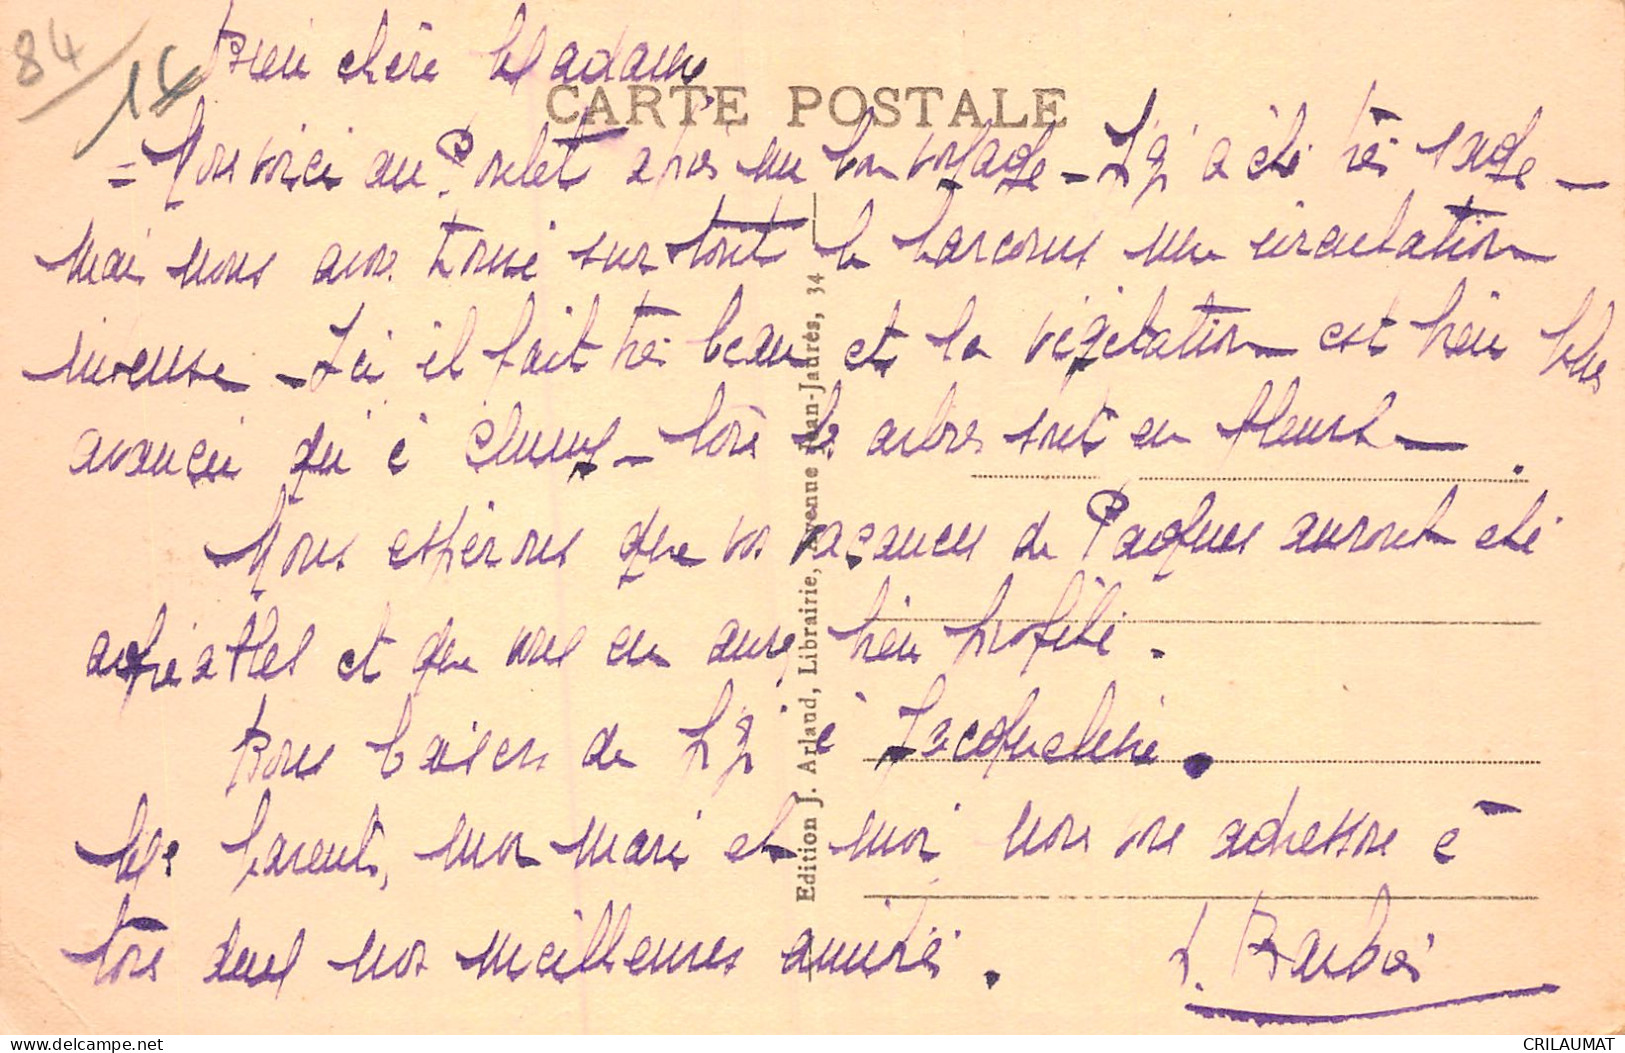 84/14
Bien chère Madame,
CARTE POSTALE
= Nous voici au Pontet après un bon voyage – Gigi a été très sage –
mais nous avons trouvé sur tout le parcours une circulation
intense – Ici il fait très beau et la végétation est bien plus
avancée qu'à Cluny – tous les arbres sont en fleurs –
Nous espérons que vos vacances de Pâques auront été
agréables et que vous en aurez bien profité.
Bons baisers de Gigi à Jacqueline.
Mes parents, mon mari et moi nous vous adressons à
tous deux nos meilleures amitiés.
Edition J. Arlaud, Librairie, Avenue Jean-Jaurès, 34
CRILAUMAT